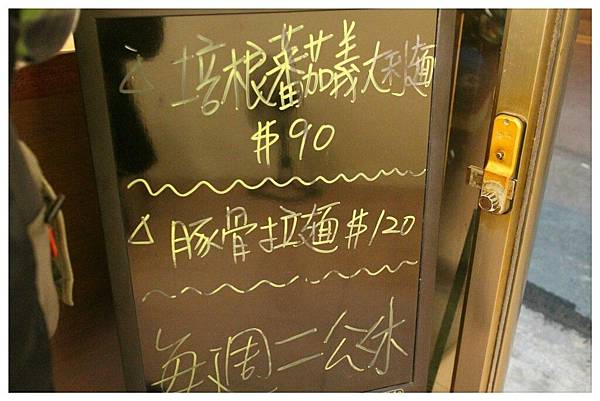 △培根蕃茄義大利麵
$90
△豚骨拉麵$120
每週二公休